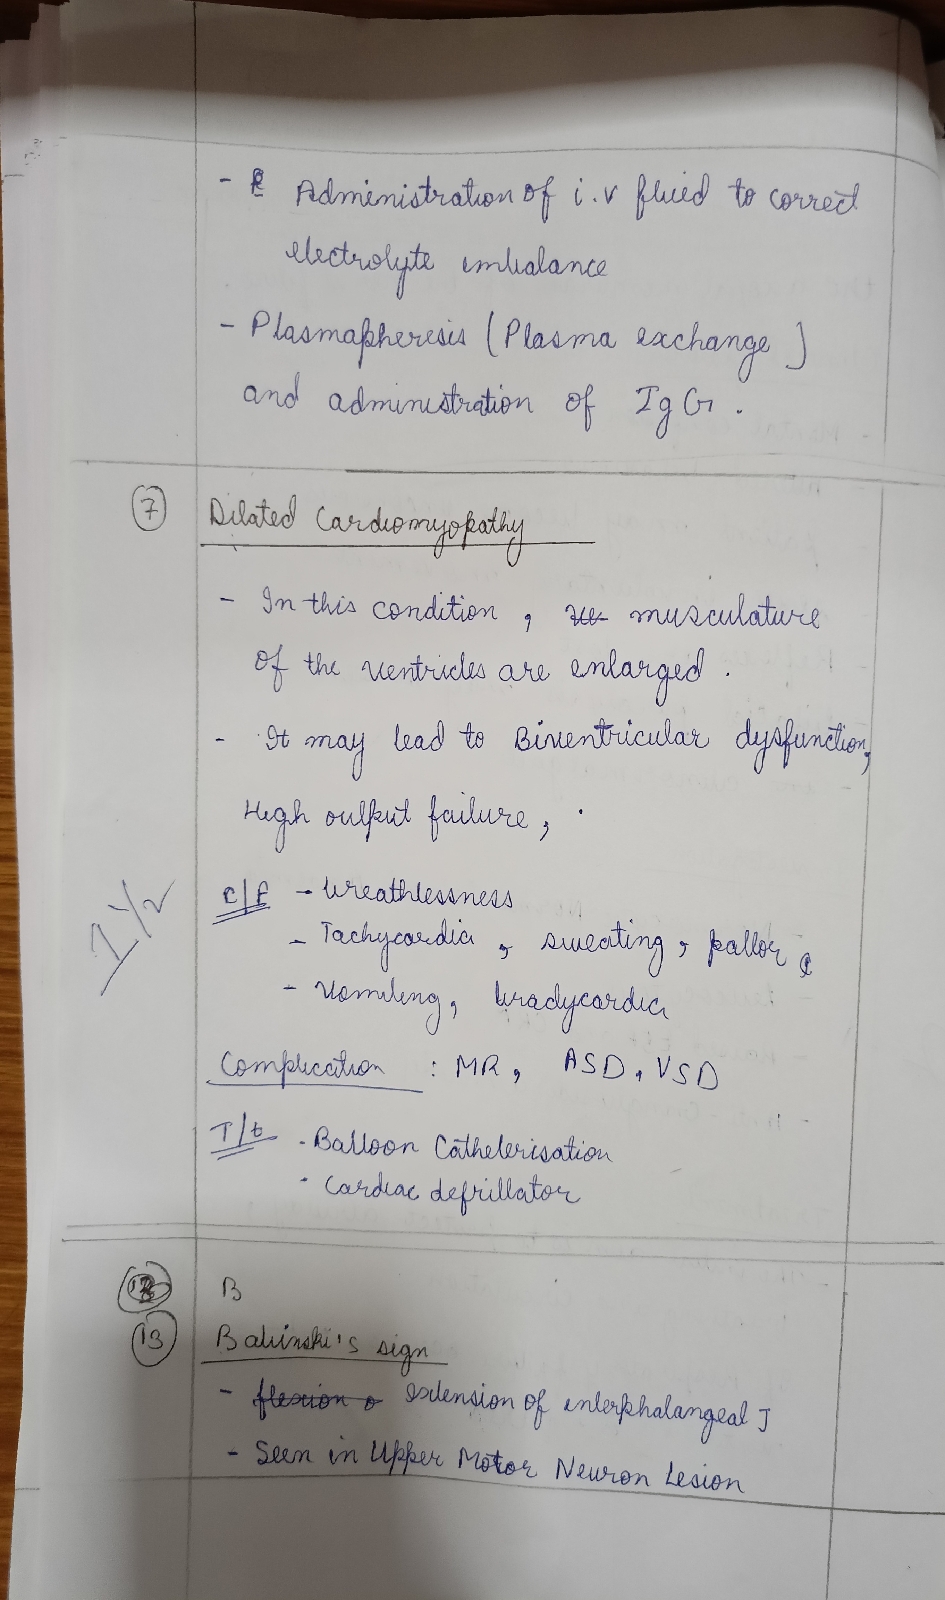 - Administration of i.v fluid to correct
electrolyte imbalance
- Plasmapheresis (Plasma exchange)
and administration of IgG.
7 Dilated Cardiomyopathy
- In this condition, musculature
of the ventricles are enlarged.
- It may lead to Biventricular dysfunction,
High output failure,
1 1/2
C/F - breathlessness
- Tachycardia, sweating, pallor
- Vomiting, bradycardia
Complication : MR, ASD, VSD
T/t - Balloon Catheterisation
- Cardiac defrillator
B
13 Babinski's sign
- flexion o extension of interphalangeal J
- Seen in Upper Motor Neuron Lesion